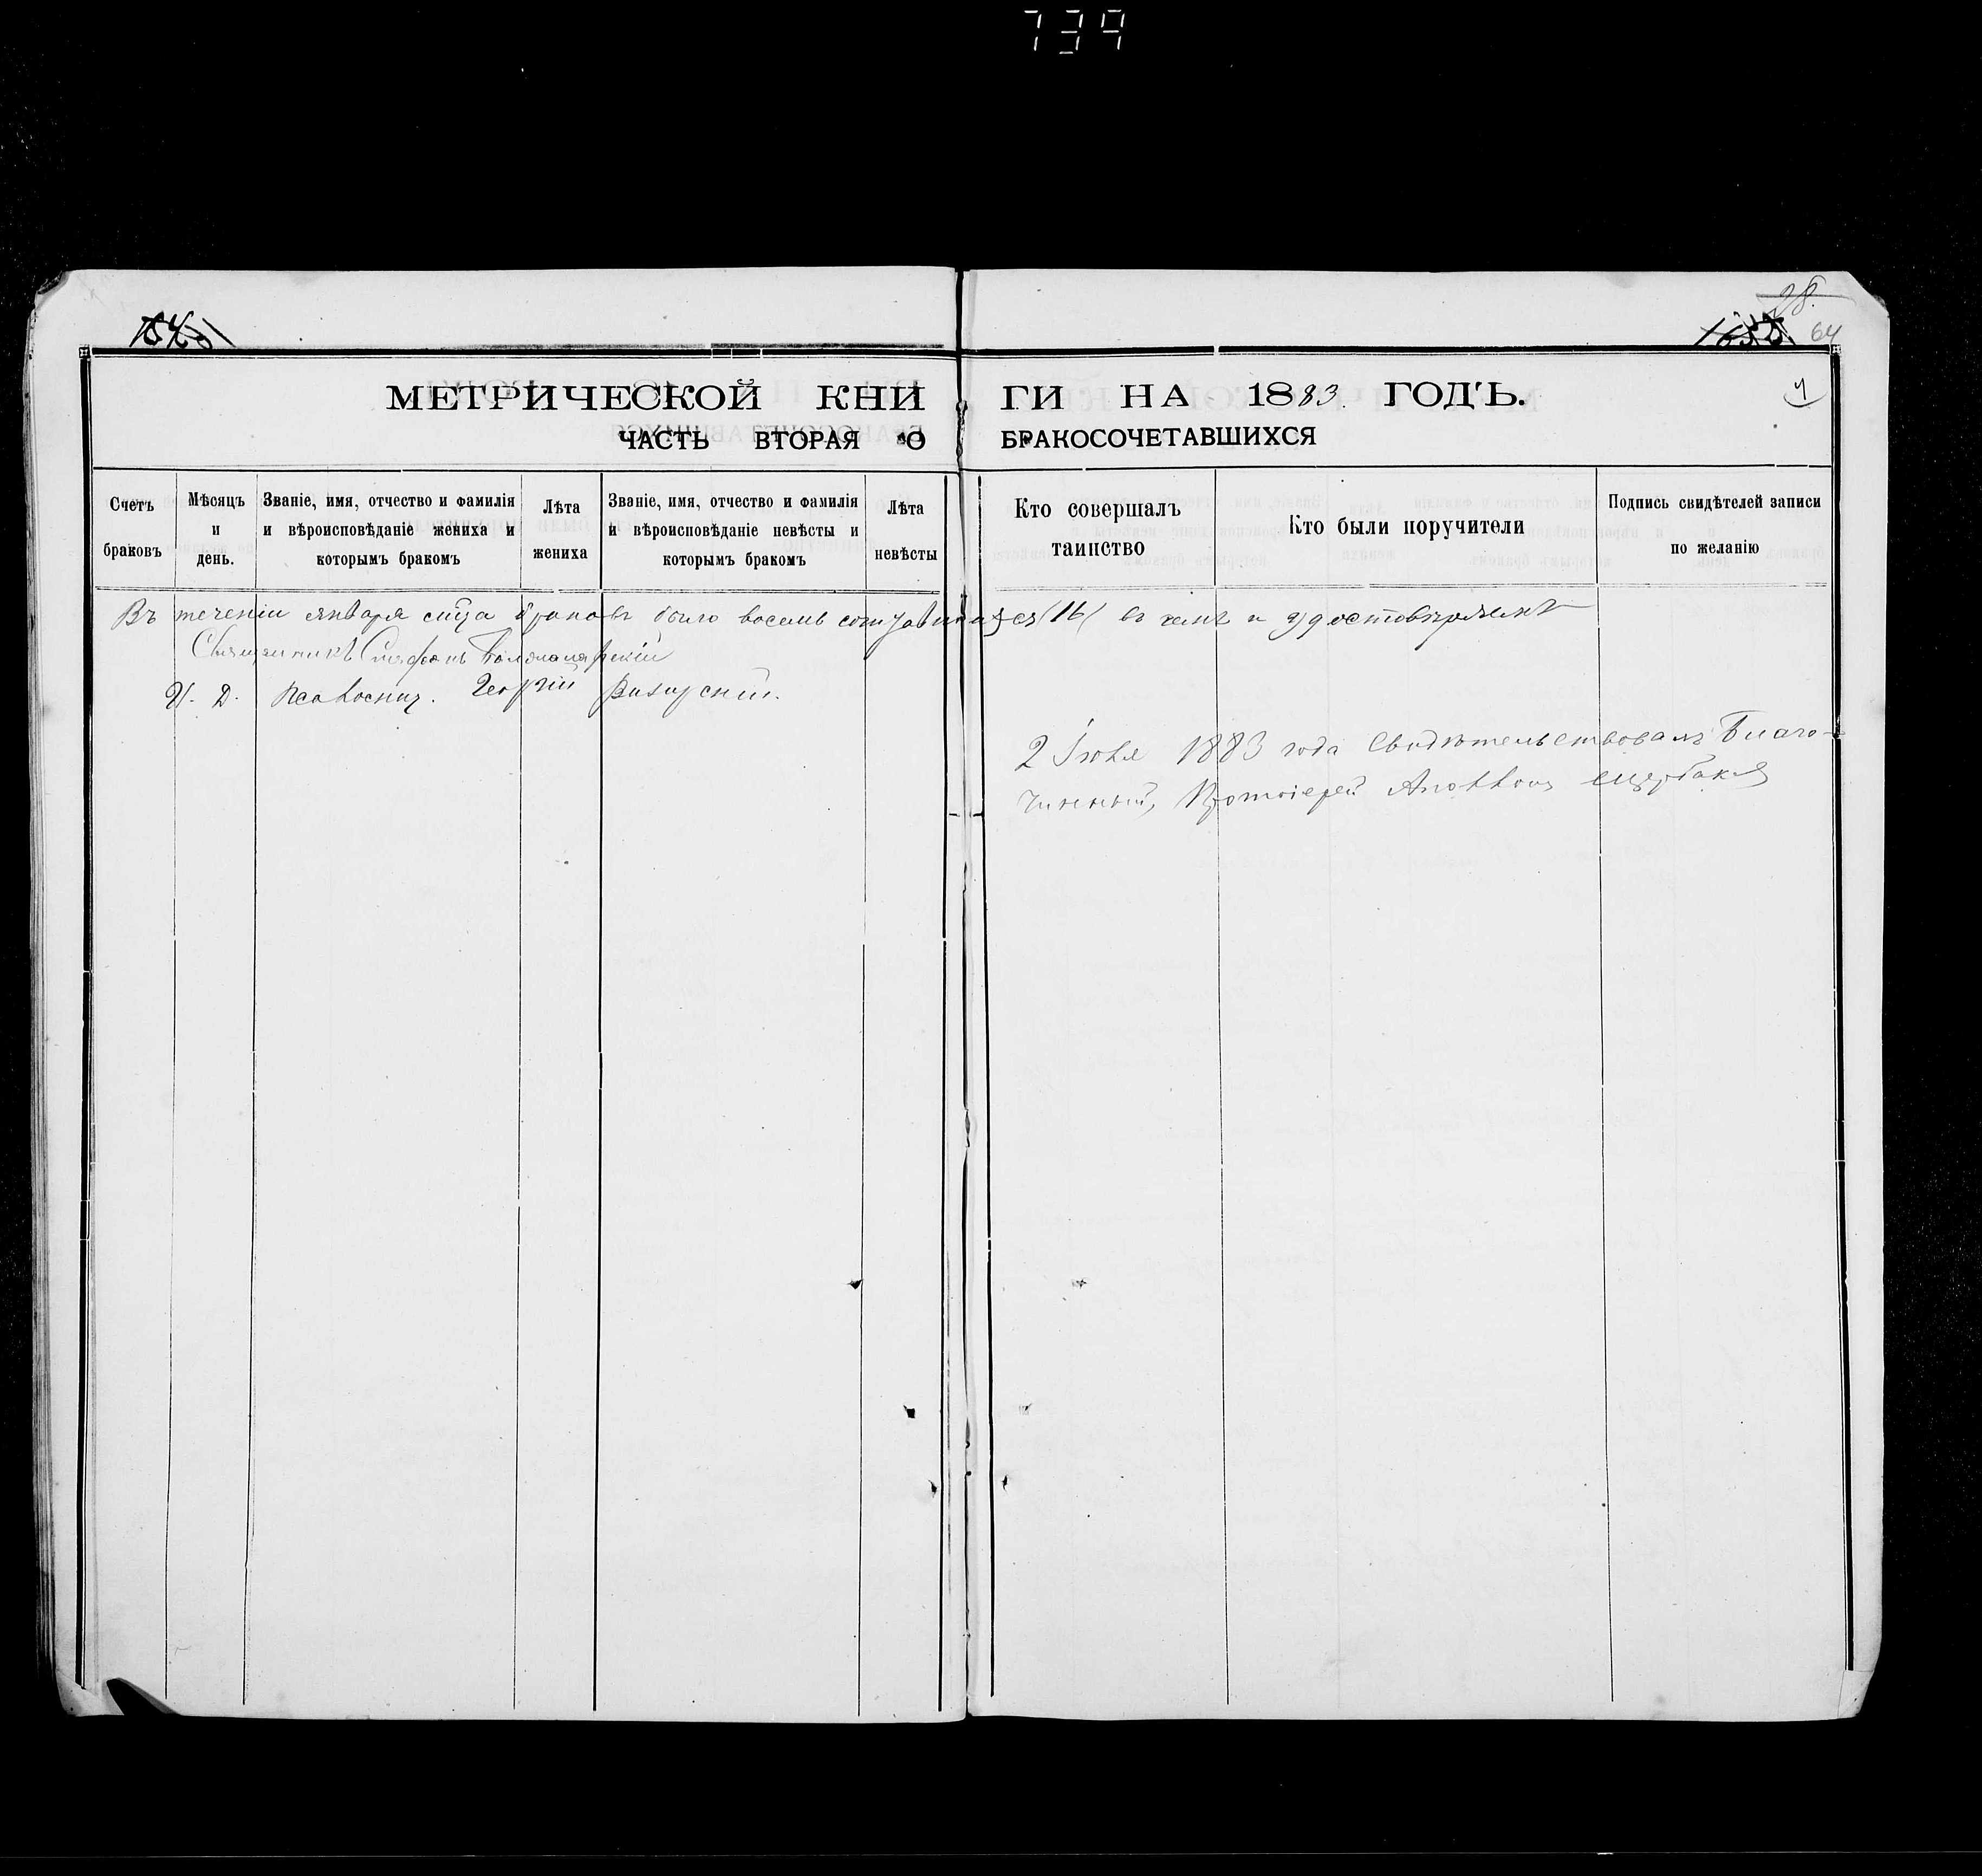 739
28.
64
МЕТРИЧЕСКОЙ КНИГИ НА 1883 ГОДЪ.
7
ЧАСТЬ ВТОРАЯ О БРАКОСОЧЕТАВШИХСЯ
Счетъ браковъ
Мѣсяцъ и день.
Званіе, имя, отчество и фамилія и вѣроисповѣданіе жениха и которымъ бракомъ
Лѣта жениха
Званіе, имя, отчество и фамилія и вѣроисповѣданіе невѣсты и которымъ бракомъ
Лѣта невѣсты
Кто совершалъ таинство
Кто были поручители
Подпись свидѣтелей записи по желанію
Въ теченіи января браковъ было восемь (16) въ чемъ и удостовѣряемъ
Священникъ Стефанъ
И. Д. Псаломщ. Георгій
2 Іюля 1883 года свидѣтельствовалъ Благо-
чинный, Протоіерей